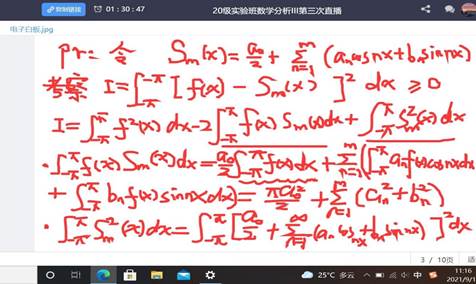 复制链接 01:30:47 20级实验班数学分析III第三次直播
电子白板.jpg
pr= 令 Sₘ(x)=a₀/2+∑ₙ₌₁ᵐ(aₙcosnx+bₙsinnx)
考察 I=∫₋π⁻π[f(x)-Sₘ(x)]²dx≥0
I=∫₋π^π f²(x)dx-2∫₋π^π f(x)Sₘ(x)dx+∫₋π^π Sₘ²(x)dx
·∫₋π^π f(x)Sₘ(x)dx=a₀/2∫₋π^π f(x)dx+∑ₙ₌₁ᵐ(∫₋π^π aₙf(x)cosnxdx
+∫₋π^π bₙf(x)sinnxdx)=πa₀²/2+∑ₙ₌₁ᵐ(aₙ²+bₙ²)
·∫₋π^π Sₘ²(x)dx=∫₋π^π[a₀/2+∑ₙ₌₁^∞(aₙcosnx+bₙsinnx)]²dx
3 / 10页
25°C 多云 中 11:16
2021/9/1